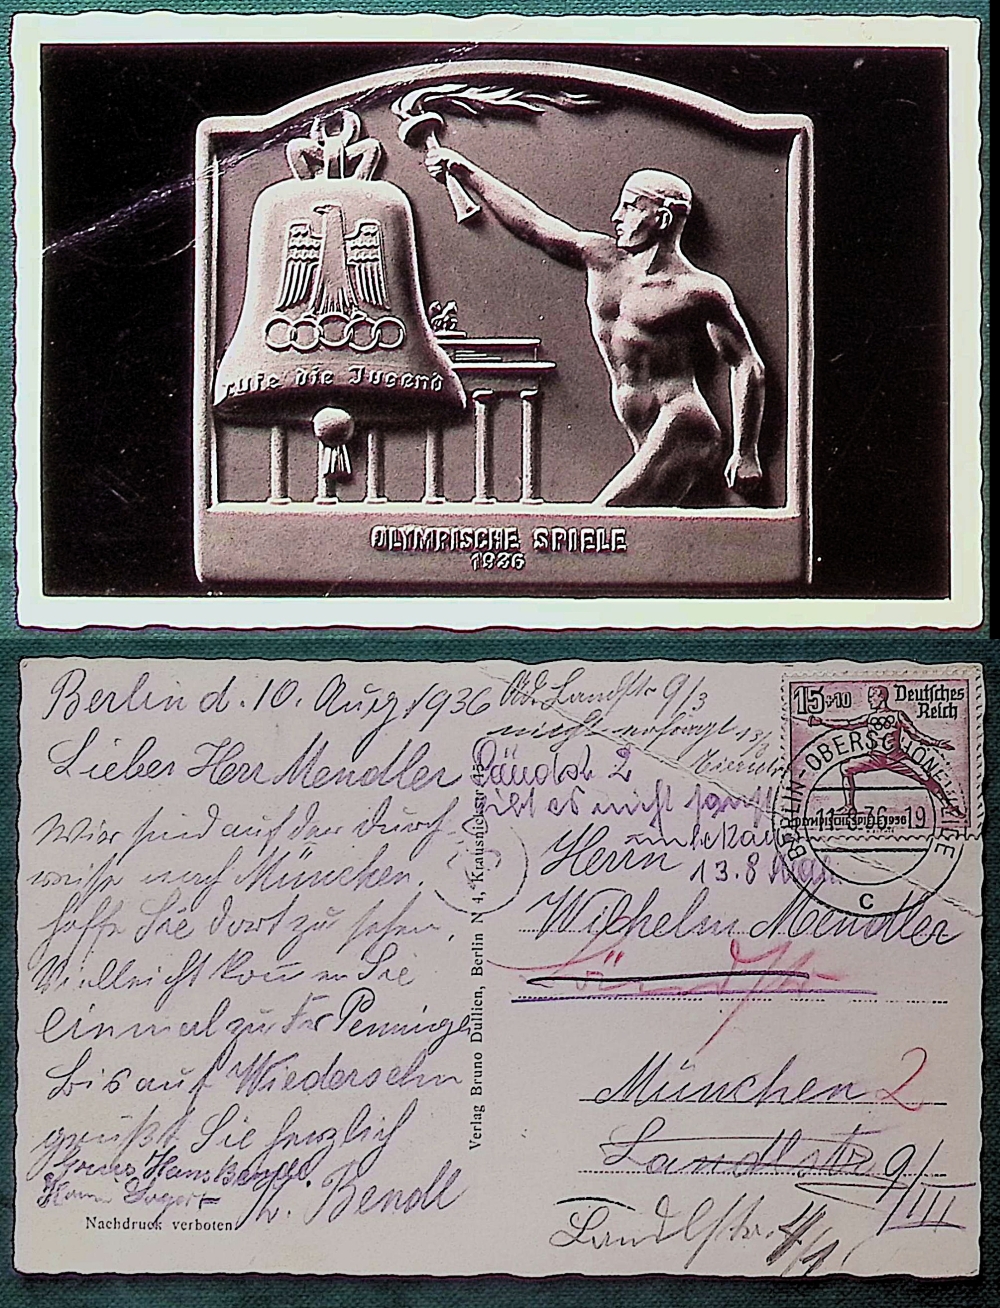 rufe die Jugend
OLYMPISCHE SPIELE
1936
Berlin d. 10. Aug. 1936
Lieber Herr Mendler
Wir sind auf der Durch-
reise nach München.
hoffe Sie dort zu sehen.
Vielleicht kommen Sie
einmal zu Fr Penninge
Bis auf Wiedersehn
grüßt Sie herzlich
Hans Bendl.
Bendl
Nachdruck verboten
Verlag Bruno Dullien, Berlin N 4, Krausnickstr
Landstr 9/3
2
gibt es nicht
13.8
15+10 Deutsches
Reich
OLYMPISCHE SPIELE 1936
BERLIN-OBERSCHÖNEWEIDE
19
c
Herrn
Wilhelm Mendler
München 2
Landlstr 9/III
Landlstr.